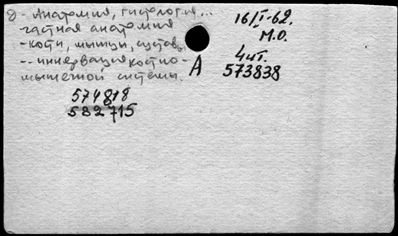 8 - Анатомия, гистология...
частная анатомия
- кости, мышцы, суставы
-- иннервация костно-
мышечной системы.
574818
582715
A
16/I-62.
М.О.
4 шт.
573838